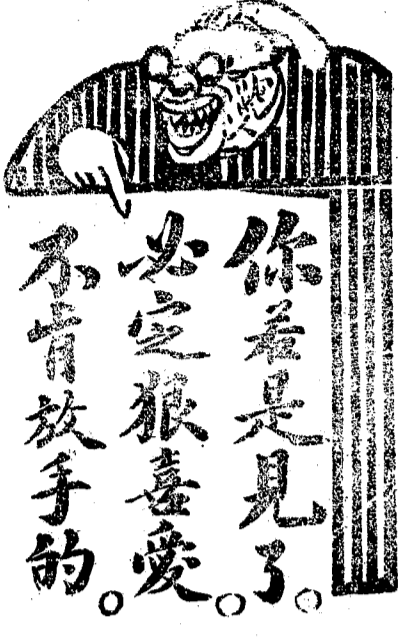 你若是見了。
必定狠喜愛。
不肯放手的。